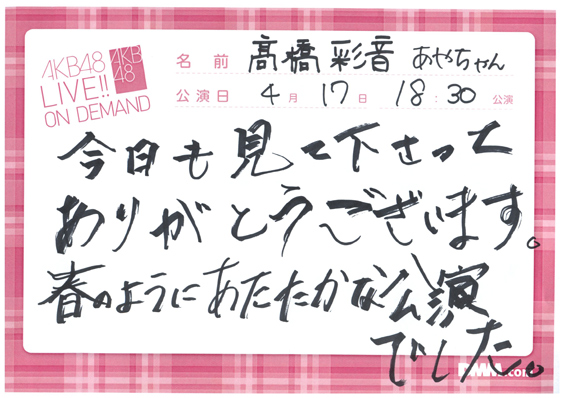 AKB48
LIVE!!
ON DEMAND
AKB
48
名前 高橋彩音 あやちゃん
公演日 4月17日 18:30 公演
今日も見て下さって
ありがとうございます。
春のようにあたたかな公演
でした。
DMM.com